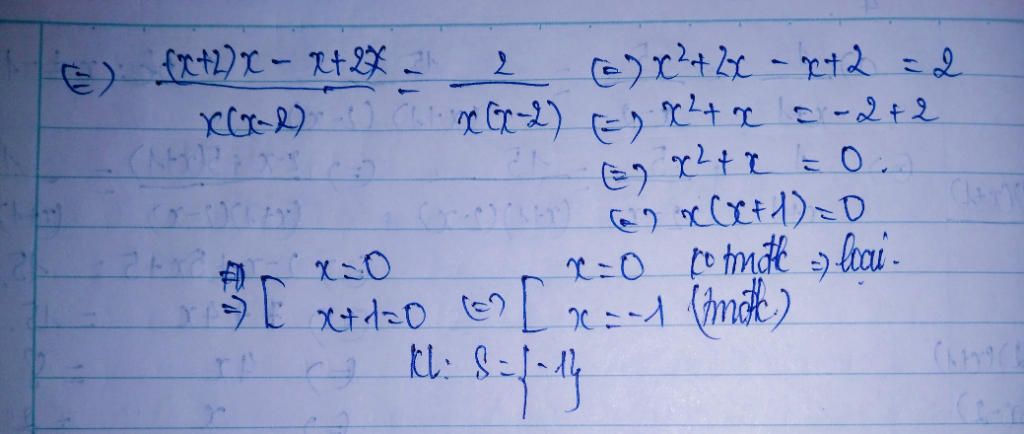 (=) (x+2)x - x+2 / x(x-2) = 2 / x(x-2) (=) x²+2x - x+2 = 2
(=) x²+x = -2+2
(=) x²+x = 0.
(=) x(x+1)=0
=> [ x=0 (=) [ x=0 ko tmđk => loại.
x+1=0 x=-1 (tmđk)
KL: S={-1}